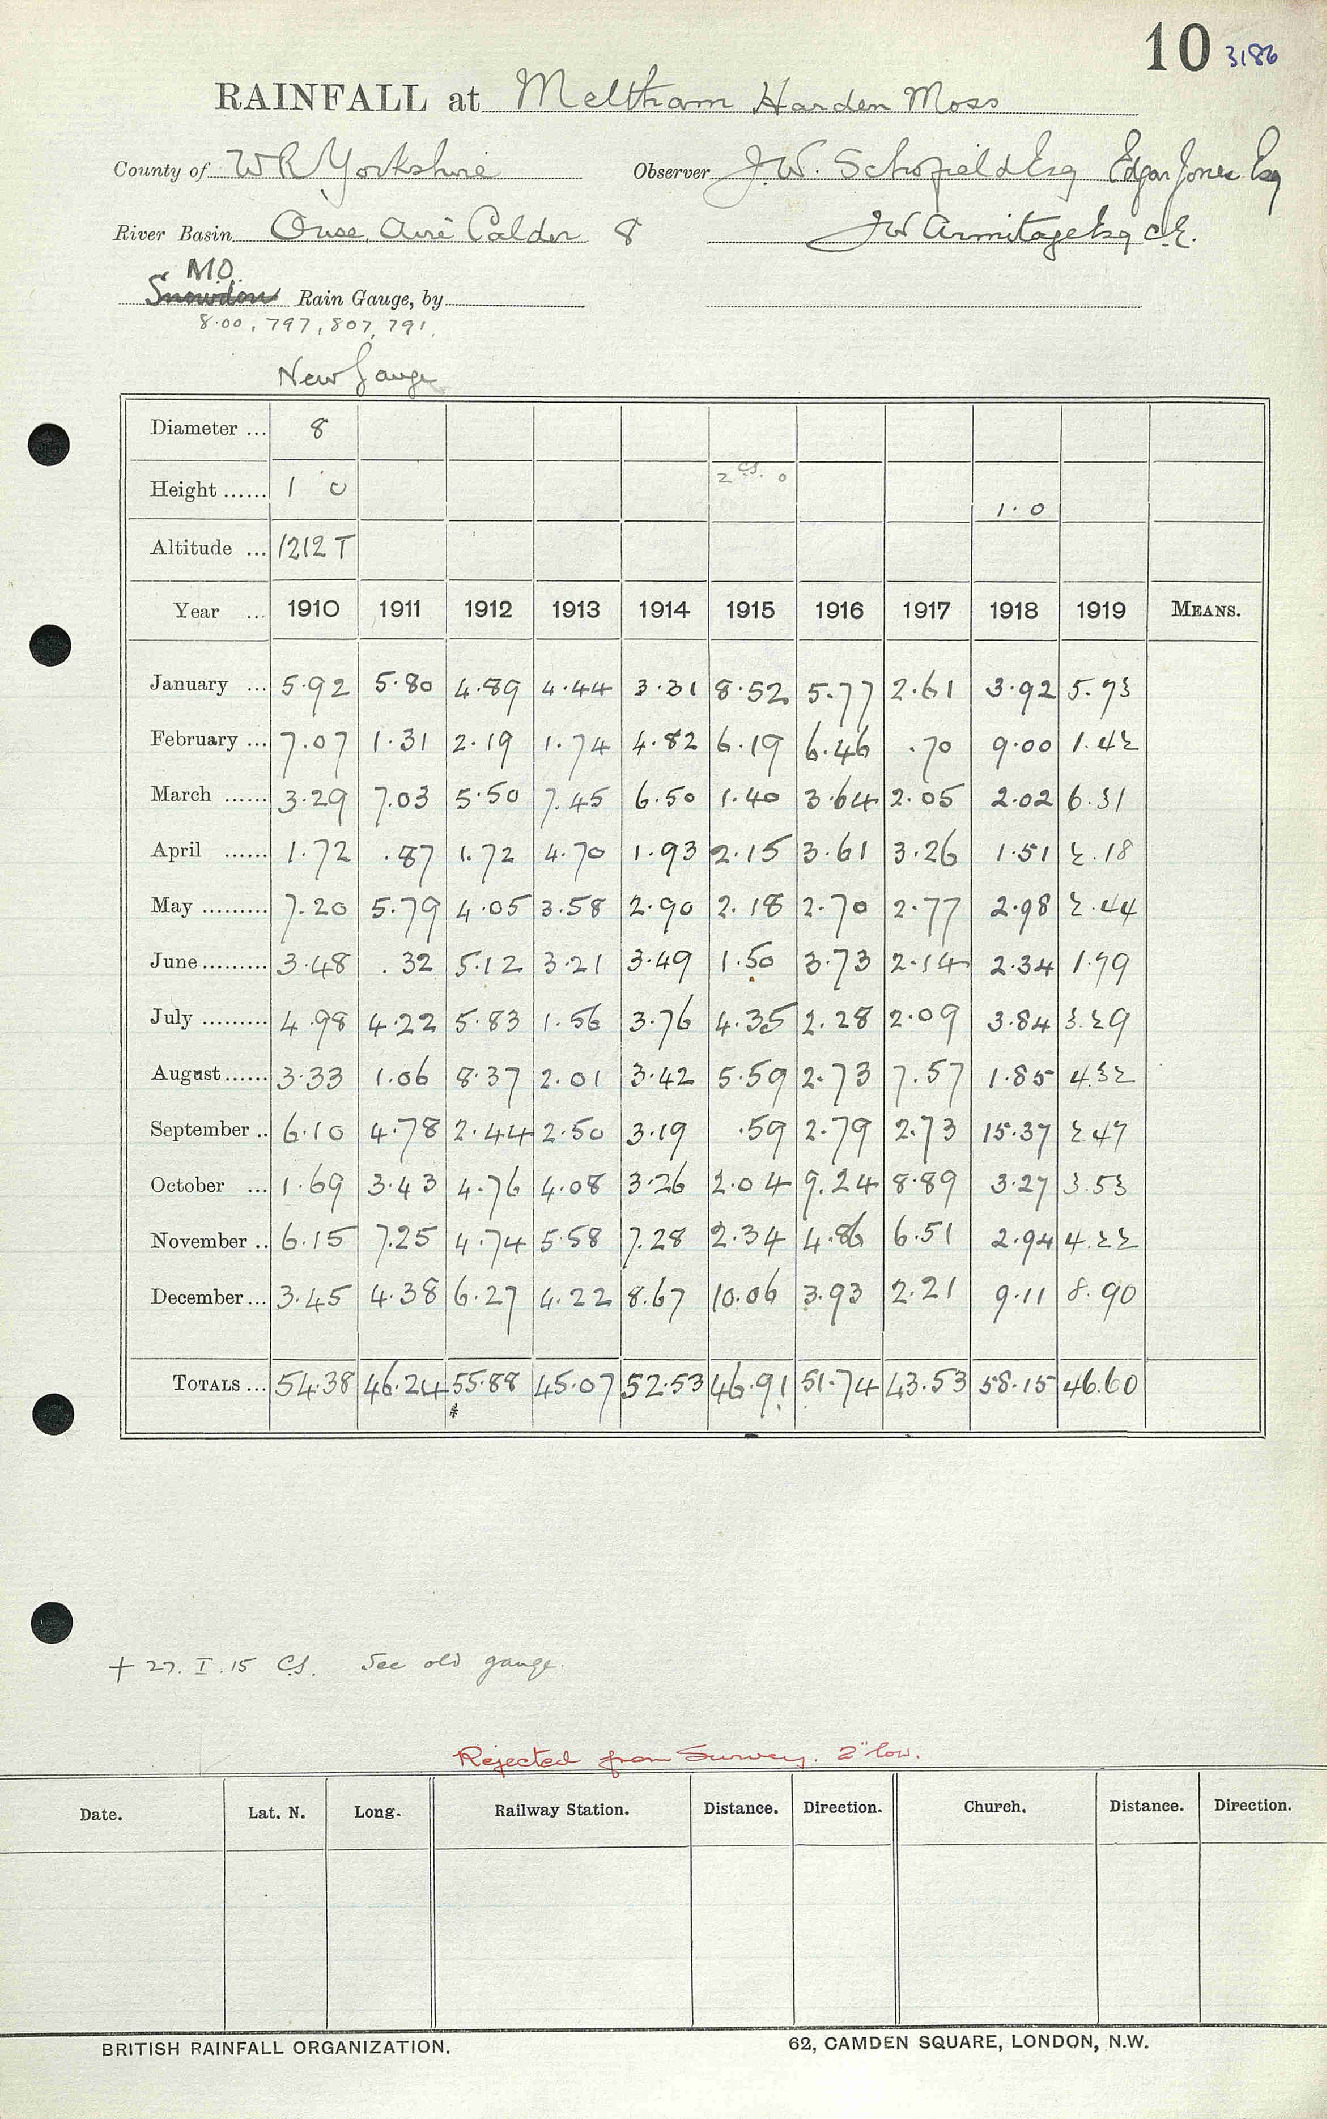 10 3186
RAINFALL at Meltham Harden Moss
County of WR Yorkshire Observer J.W. Schofield Esq Edgar Jones Esq
River Basin Ouse, Aire Calder 8 JW Armitage Esq C.E.
M.O.
Snowdon Rain Gauge, by
8.00, 797, 807, 791.
New Gauge
Diameter ... 8
Height ...... 1 0 2 CS. 0 1.0
Altitude ... 1212 T
Year ... 1910 1911 1912 1913 1914 1915 1916 1917 1918 1919 MEANS.
January ... 5.92 5.80 4.89 4.44 3.31 8.52 5.77 2.61 3.92 5.73
February ... 7.07 1.31 2.19 1.74 4.82 6.19 6.46 .70 9.00 1.42
March ...... 3.29 7.03 5.50 7.45 6.50 1.40 3.64 2.05 2.02 6.31
April ...... 1.72 .87 1.72 4.70 1.93 2.15 3.61 3.26 1.51 2.18
May ......... 7.20 5.79 4.05 3.58 2.90 2.18 2.70 2.77 2.98 2.44
June ......... 3.48 .32 5.12 3.21 3.49 1.50 3.73 2.14 2.34 1.79
July ......... 4.98 4.22 5.83 1.56 3.76 4.35 2.28 2.09 3.84 3.29
August ...... 3.33 1.06 8.37 2.01 3.42 5.59 2.73 7.57 1.85 4.32
September .. 6.10 4.78 2.44 2.50 3.19 .59 2.79 2.73 15.37 2.47
October ... 1.69 3.43 4.76 4.08 3.26 2.04 9.24 8.89 3.27 3.53
November .. 6.15 7.25 4.74 5.58 7.28 2.34 4.86 6.51 2.94 4.22
December ... 3.45 4.38 6.27 4.22 8.67 10.06 3.93 2.21 9.11 8.90
TOTALS ... 54.38 46.24 55.88 45.07 52.53 46.91 51.74 43.53 58.15 46.60
+ 27. I. 15 CS. See old gauge.
Rejected from Survey. 2" low.
Date. Lat. N. Long. Railway Station. Distance. Direction. Church. Distance. Direction.
BRITISH RAINFALL ORGANIZATION. 62, CAMDEN SQUARE, LONDON, N.W.